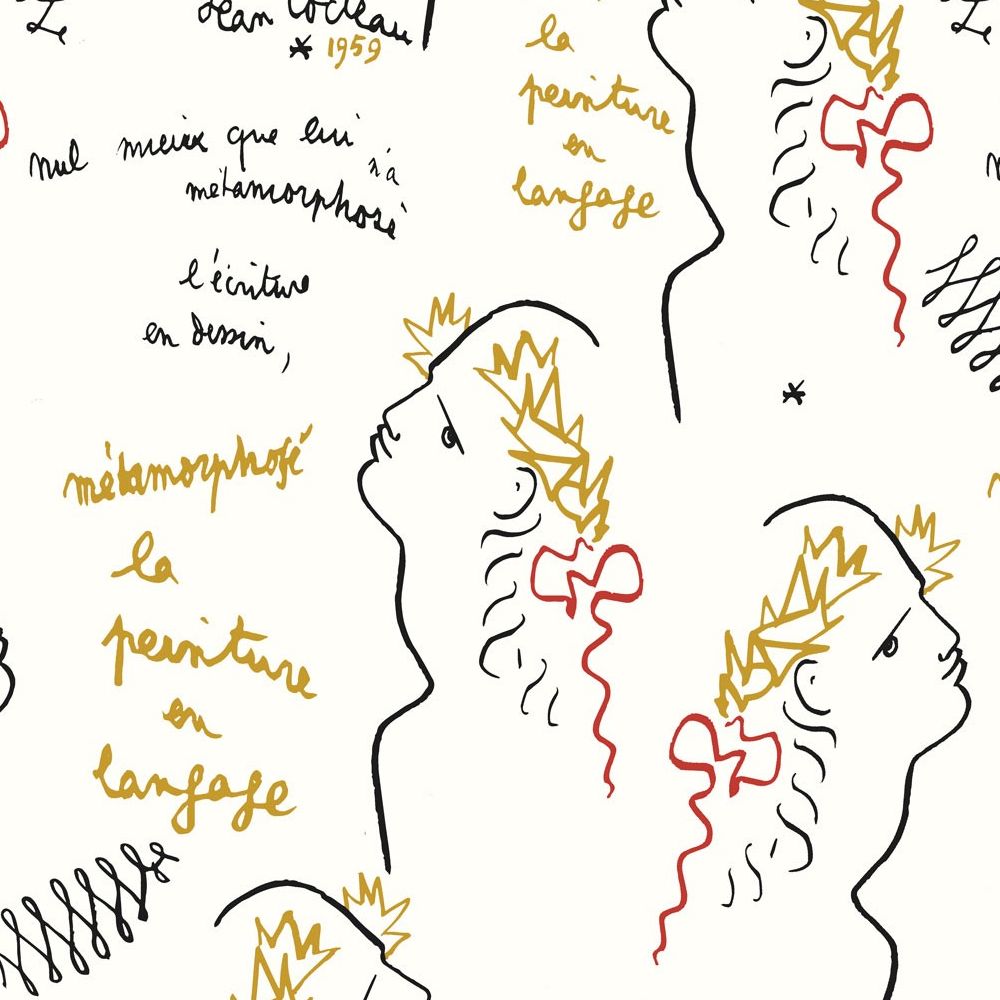 Le
Jean Cocteau
* 1959
nul mieux que lui
n'a
métamorphosé
l'écriture
en dessin,
la
peinture
en
langage
*
métamorphosé
la
peinture
en
langage
Le